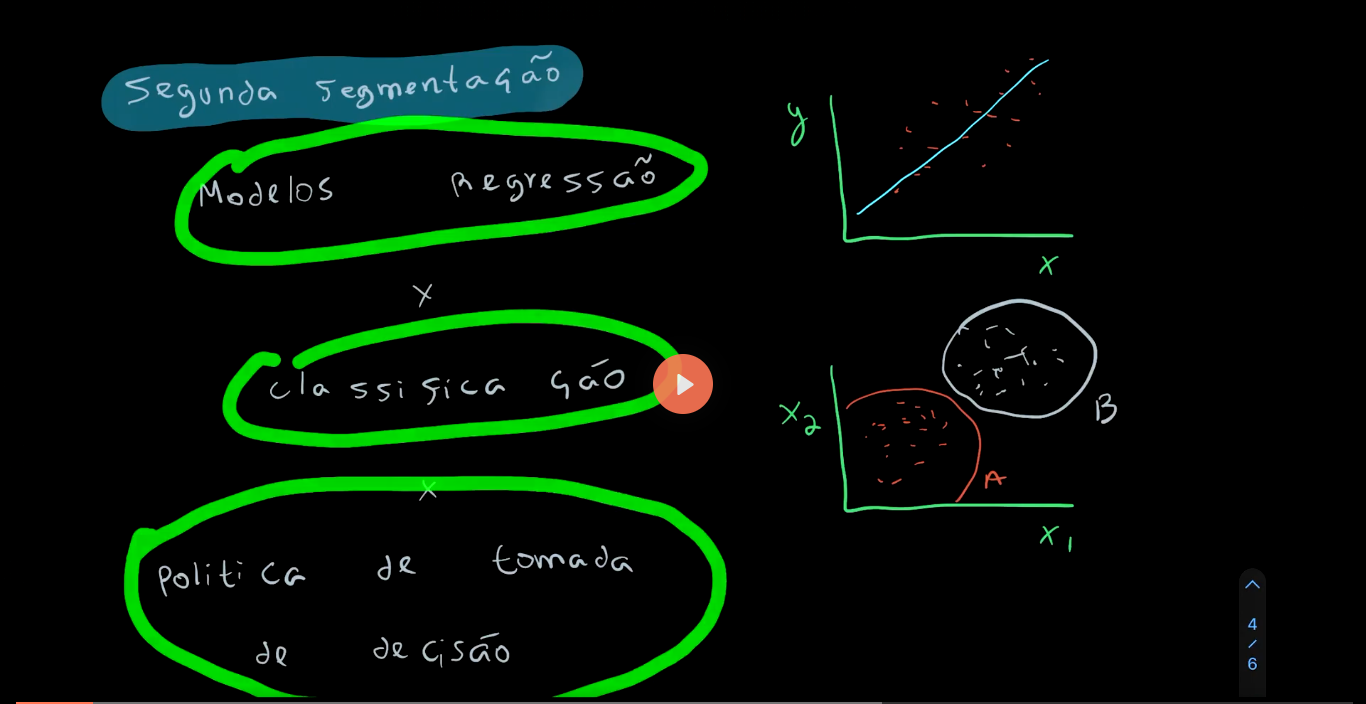 Segunda Segmentação
Modelos Regressão
X
Classificação
X
Politica de tomada
de decisão
y
x
x2
x1
A
B
4
/
6